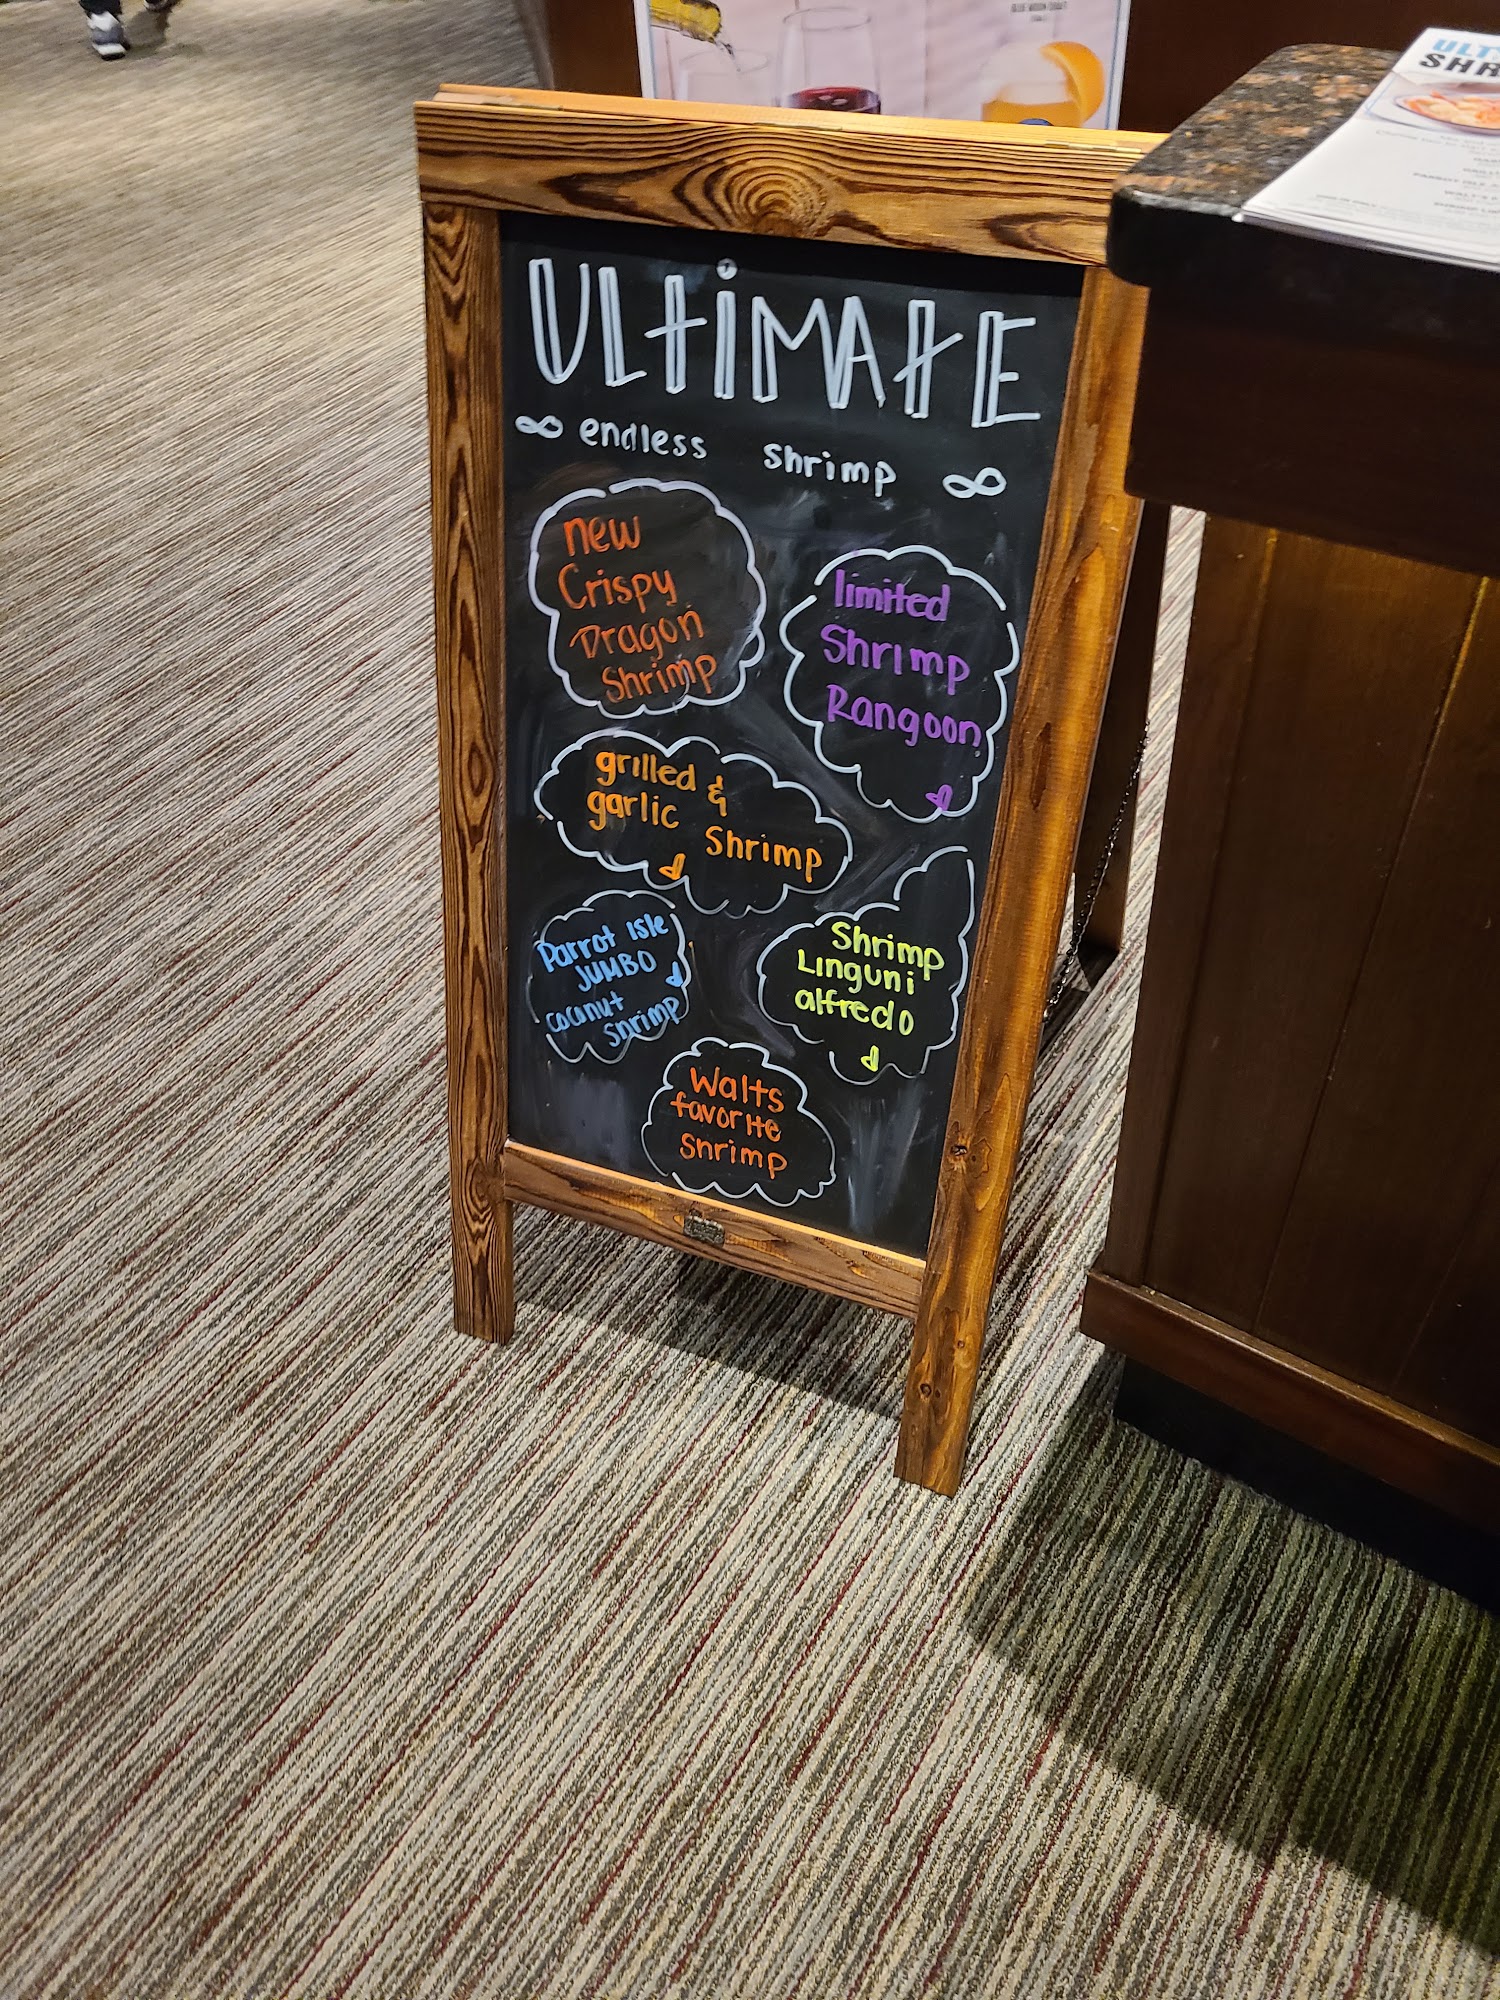 ULtiMAtE
∞ endless shrimp ∞
new
Crispy
Dragon
Shrimp
limited
Shrimp
Rangoon
grilled &
garlic Shrimp
Parrot Isle
JUMBO
coconut
shrimp
Shrimp
Linguni
alfredo
Walts
favorite
shrimp
BLUE MOON
ULT
SHR
PARROT ISLE
WALT'S